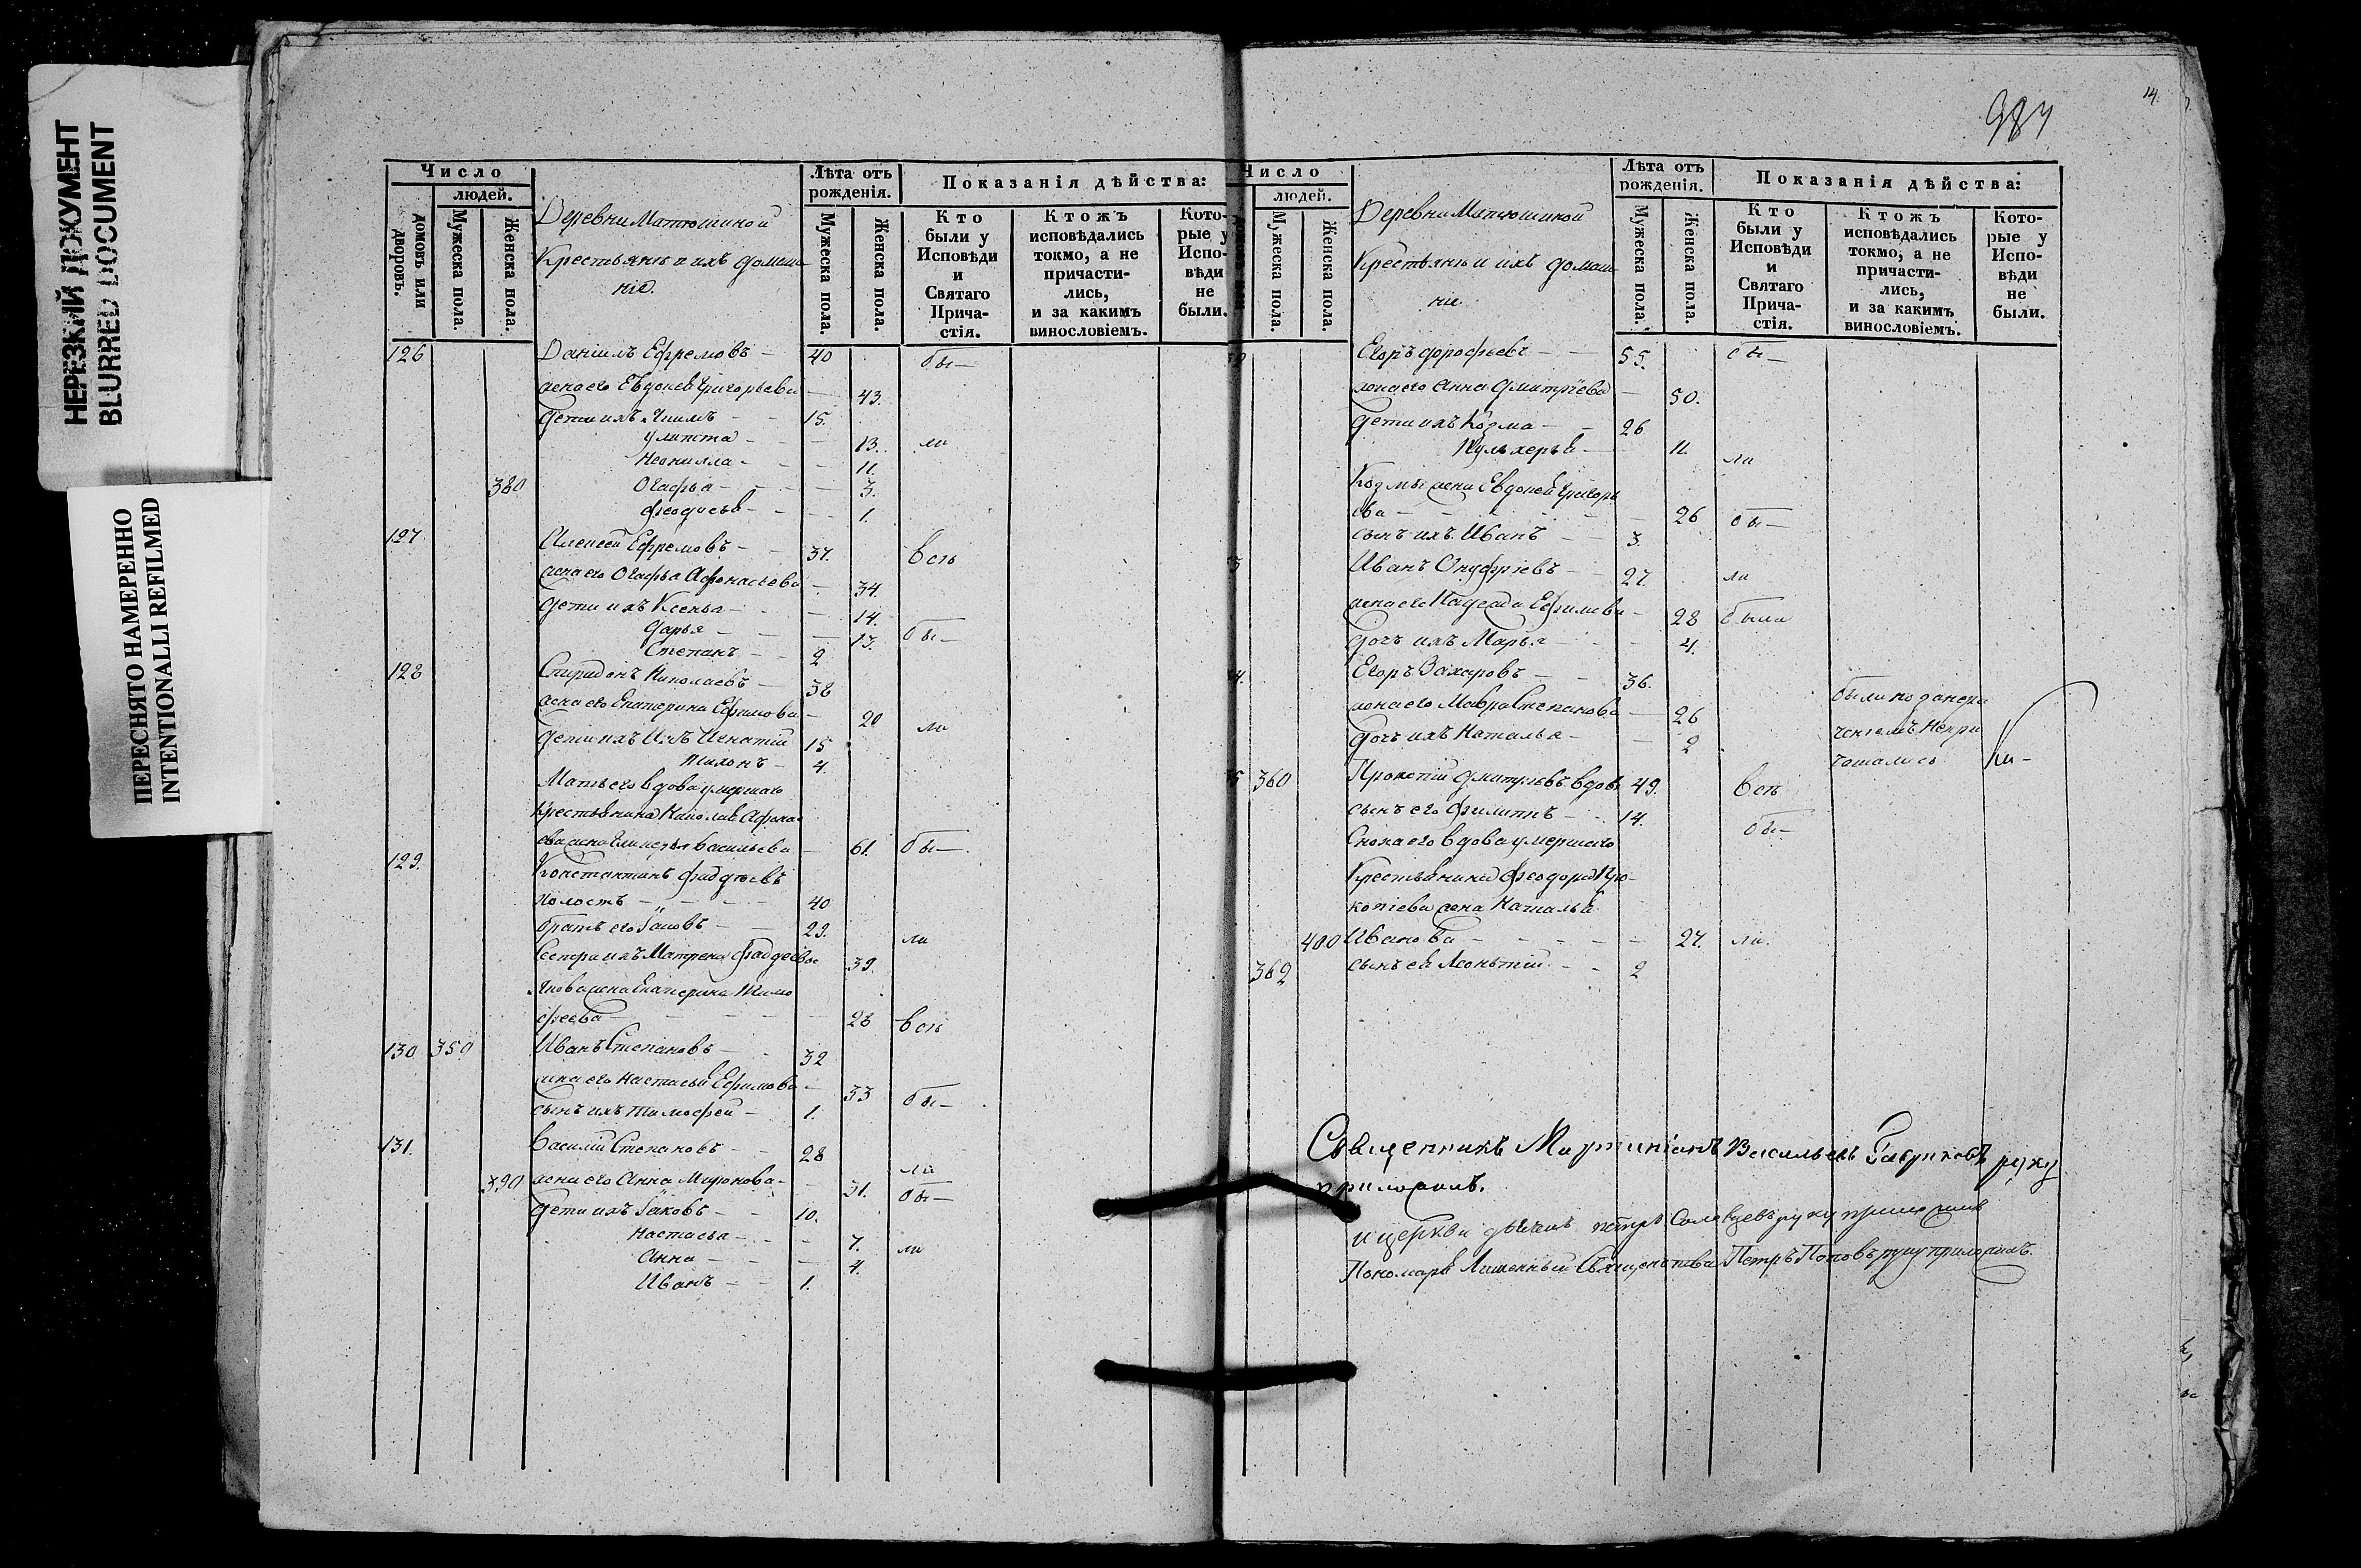 НЕРЕЗКИЙ ДОКУМЕНТ
BLURRED DOCUMENT
ПЕРЕСНЯТО НАМЕРЕННО
INTENTIONALLI REFILMED
Число
людей.
домовъ или дворовъ.
Мужеска пола.
Женска пола.
Деревни Матюшиной
Крестьянѣ и ихъ домаш
ніе.
Лѣта отъ рожденія.
Мужеска пола.
Женска пола.
Показанія дѣйства:
Кто были у Исповѣди и Святаго Прича-стія.
Ктожъ исповѣдались токмо, а не причасти-лись, и за какимъ винословіемъ.
Кото-рые у Испо-вѣди не были.
126 Даніилъ Ефремовъ — 40 бы—
жена его Евдокея Григорьева — 43.
дети ихъ 15.
Улита — 13. ли
Неонилла — 11.
380 Огафья — 3.
Феодосья — 1.
127 Алексей Ефремовъ — 37. всѣ
жена его Огафья Афонасьева — 34.
дети ихъ Ксенья — 14.
Дарья — 13. бы—
Степанъ — 2
128 Спиридонъ Николаевъ — 38
жена его Екатерина Ефимова — 20 ли
дети ихъ Игнатій 15
Тихонъ — 4.
Мать его вдова умершаго
крестьянина Николая Афона
сьева жена Гликерья Васильева — 61. бы—
129. Константинъ Фаддеевъ
холостъ — 40
братъ его Іаковъ — 29. ли
Сестра ихъ Матрена Фаддеева 39.
Якова жена Екатерина Тимо
феева — 28 всѣ
130 350 Иванъ Степановъ — 32
жена его Настасья Ефимова — 33 бы—
сынъ ихъ Тимофей — 1.
131. Василій Степановъ — 28 ли
390 жена его Анна Миронова — 31. бы—
дети ихъ Іаковъ — 10.
Настасья — 7. ли
Анна — 4.
Иванъ — 1.
14.
987
Число
людей.
Мужеска пола.
Женска пола.
Деревни Матюшиной
Крестьянѣ и ихъ домаш
ніе
Лѣта отъ рожденія.
Мужеска пола.
Женска пола.
Показанія дѣйства:
Кто были у Исповѣди и Святаго Прича-стія.
Ктожъ исповѣдались токмо, а не причасти-лись, и за какимъ винословіемъ.
Кото-рые у Испо-вѣди не были.
Егоръ Дорофеевъ — 55. бы—
жена его Анна Дмитріева — 50.
дети ихъ Козма — 26
Пульхерья — 11. ли
Козмы жена Евдокея Григорь
ева — 26 бы—
сынъ ихъ Иванъ — 3.
Иванъ Онуфріевъ — 27. ли
жена его Надежда Ефимова — 28 были
дочь ихъ Марья — 4.
Егоръ Захаровъ — 36.
жена его Мавра Степанова — 26
дочь ихъ Наталья — 2
360 Прокопій Дмитріевъ вдовъ 49. всѣ
сынъ его Филиппъ — 14. бы—
Сноха его вдова умершаго
Крестьянина Феодора Про-
копіева жена Наталья
400 Иванова — 27. ли.
362 сынъ ея Леонтій — 2
Священникъ Мартиніанъ Васильевъ Гавриловъ руку
приложилъ.
Петръ Соловцевъ руку приложилъ
Пономарь Лишенный Священства Петръ Поповъ руку приложилъ.